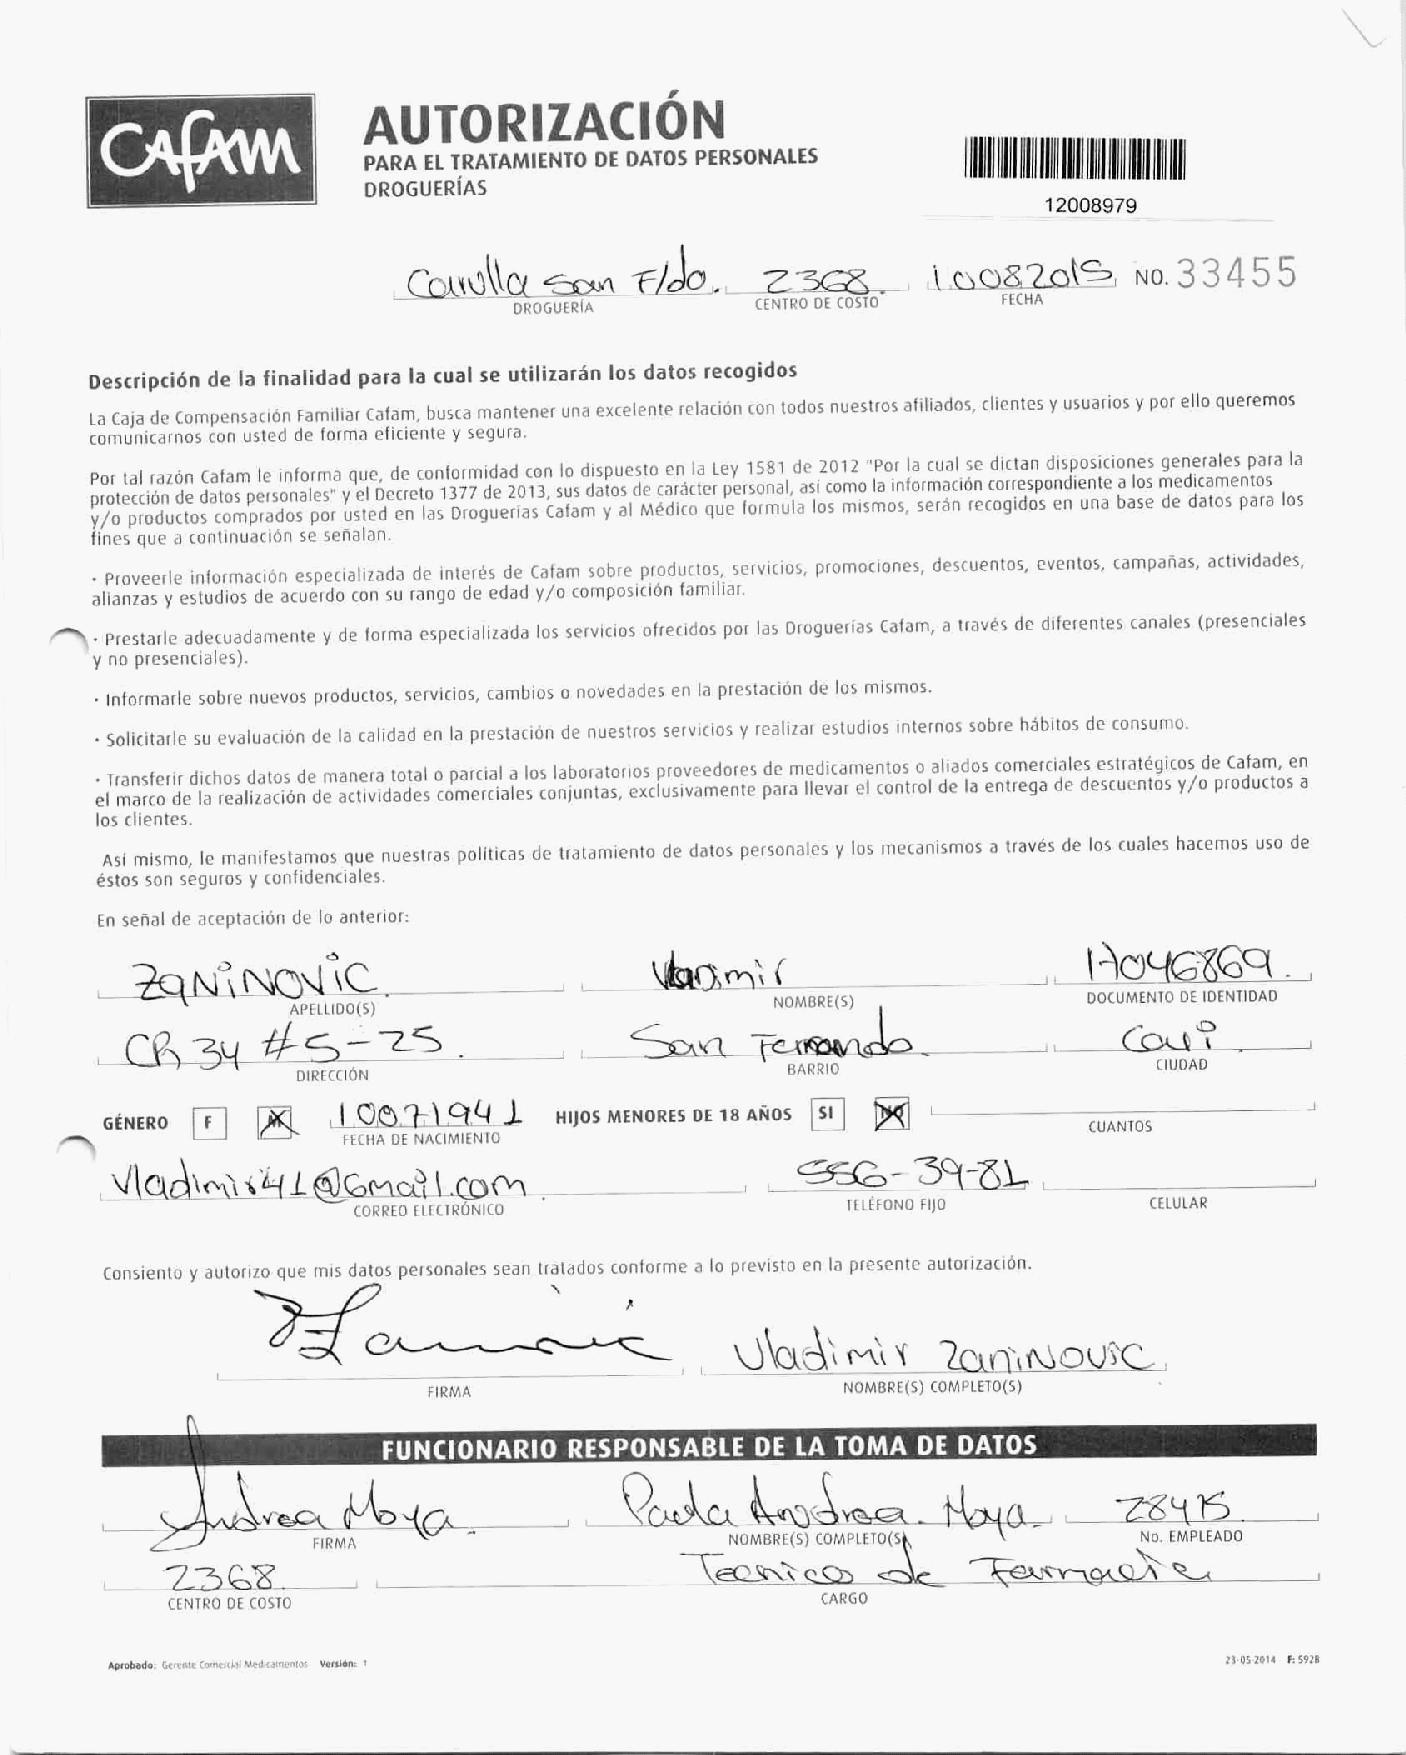 CAFAM
AUTORIZACIÓN
PARA EL TRATAMIENTO DE DATOS PERSONALES
DROGUERÍAS
12008979
Carulla San F/do. 2368. 10082015 NO. 33455
DROGUERÍA CENTRO DE COSTO FECHA
Descripción de la finalidad para la cual se utilizarán los datos recogidos
La Caja de Compensación Familiar Cafam, busca mantener una excelente relación con todos nuestros afiliados, clientes y usuarios y por ello queremos
comunicarnos con usted de forma eficiente y segura.
Por tal razón Cafam le informa que, de conformidad con lo dispuesto en la Ley 1581 de 2012 "Por la cual se dictan disposiciones generales para la
protección de datos personales" y el Decreto 1377 de 2013, sus datos de carácter personal, así como la información correspondiente a los medicamentos
y/o productos comprados por usted en las Droguerías Cafam y al Médico que formula los mismos, serán recogidos en una base de datos para los
fines que a continuación se señalan.
· Proveerle información especializada de interés de Cafam sobre productos, servicios, promociones, descuentos, eventos, campañas, actividades,
alianzas y estudios de acuerdo con su rango de edad y/o composición familiar.
· Prestarle adecuadamente y de forma especializada los servicios ofrecidos por las Droguerías Cafam, a través de diferentes canales (presenciales
y no presenciales).
· Informarle sobre nuevos productos, servicios, cambios o novedades en la prestación de los mismos.
· Solicitarle su evaluación de la calidad en la prestación de nuestros servicios y realizar estudios internos sobre hábitos de consumo.
· Transferir dichos datos de manera total o parcial a los laboratorios proveedores de medicamentos o aliados comerciales estratégicos de Cafam, en
el marco de la realización de actividades comerciales conjuntas, exclusivamente para llevar el control de la entrega de descuentos y/o productos a
los clientes.
Así mismo, le manifestamos que nuestras políticas de tratamiento de datos personales y los mecanismos a través de los cuales hacemos uso de
éstos son seguros y confidenciales.
En señal de aceptación de lo anterior:
ZaNiNOViC. Vladimir
APELLIDO(S) NOMBRE(S) DOCUMENTO DE IDENTIDAD
CR 34 #5-25. San Fernando. Cali.
DIRECCIÓN BARRIO CIUDAD
GÉNERO F M 10071941 HIJOS MENORES DE 18 AÑOS SI NO
FECHA DE NACIMIENTO CUANTOS
Vladimir41@Gmail.com. 556-39-81
CORREO ELECTRÓNICO TELÉFONO FIJO CELULAR
Consiento y autorizo que mis datos personales sean tratados conforme a lo previsto en la presente autorización.
Vladimir ZaniNovic.
FIRMA NOMBRE(S) COMPLETO(S)
FUNCIONARIO RESPONSABLE DE LA TOMA DE DATOS
Andrea Moya. Paola Andrea Moya. 28475
FIRMA NOMBRE(S) COMPLETO(S) No. EMPLEADO
2368. Tecnico de Farmacia
CENTRO DE COSTO CARGO
Aprobado: Gerente Comercial Medicamentos Versión: 1 23-05-2014 F: 592B